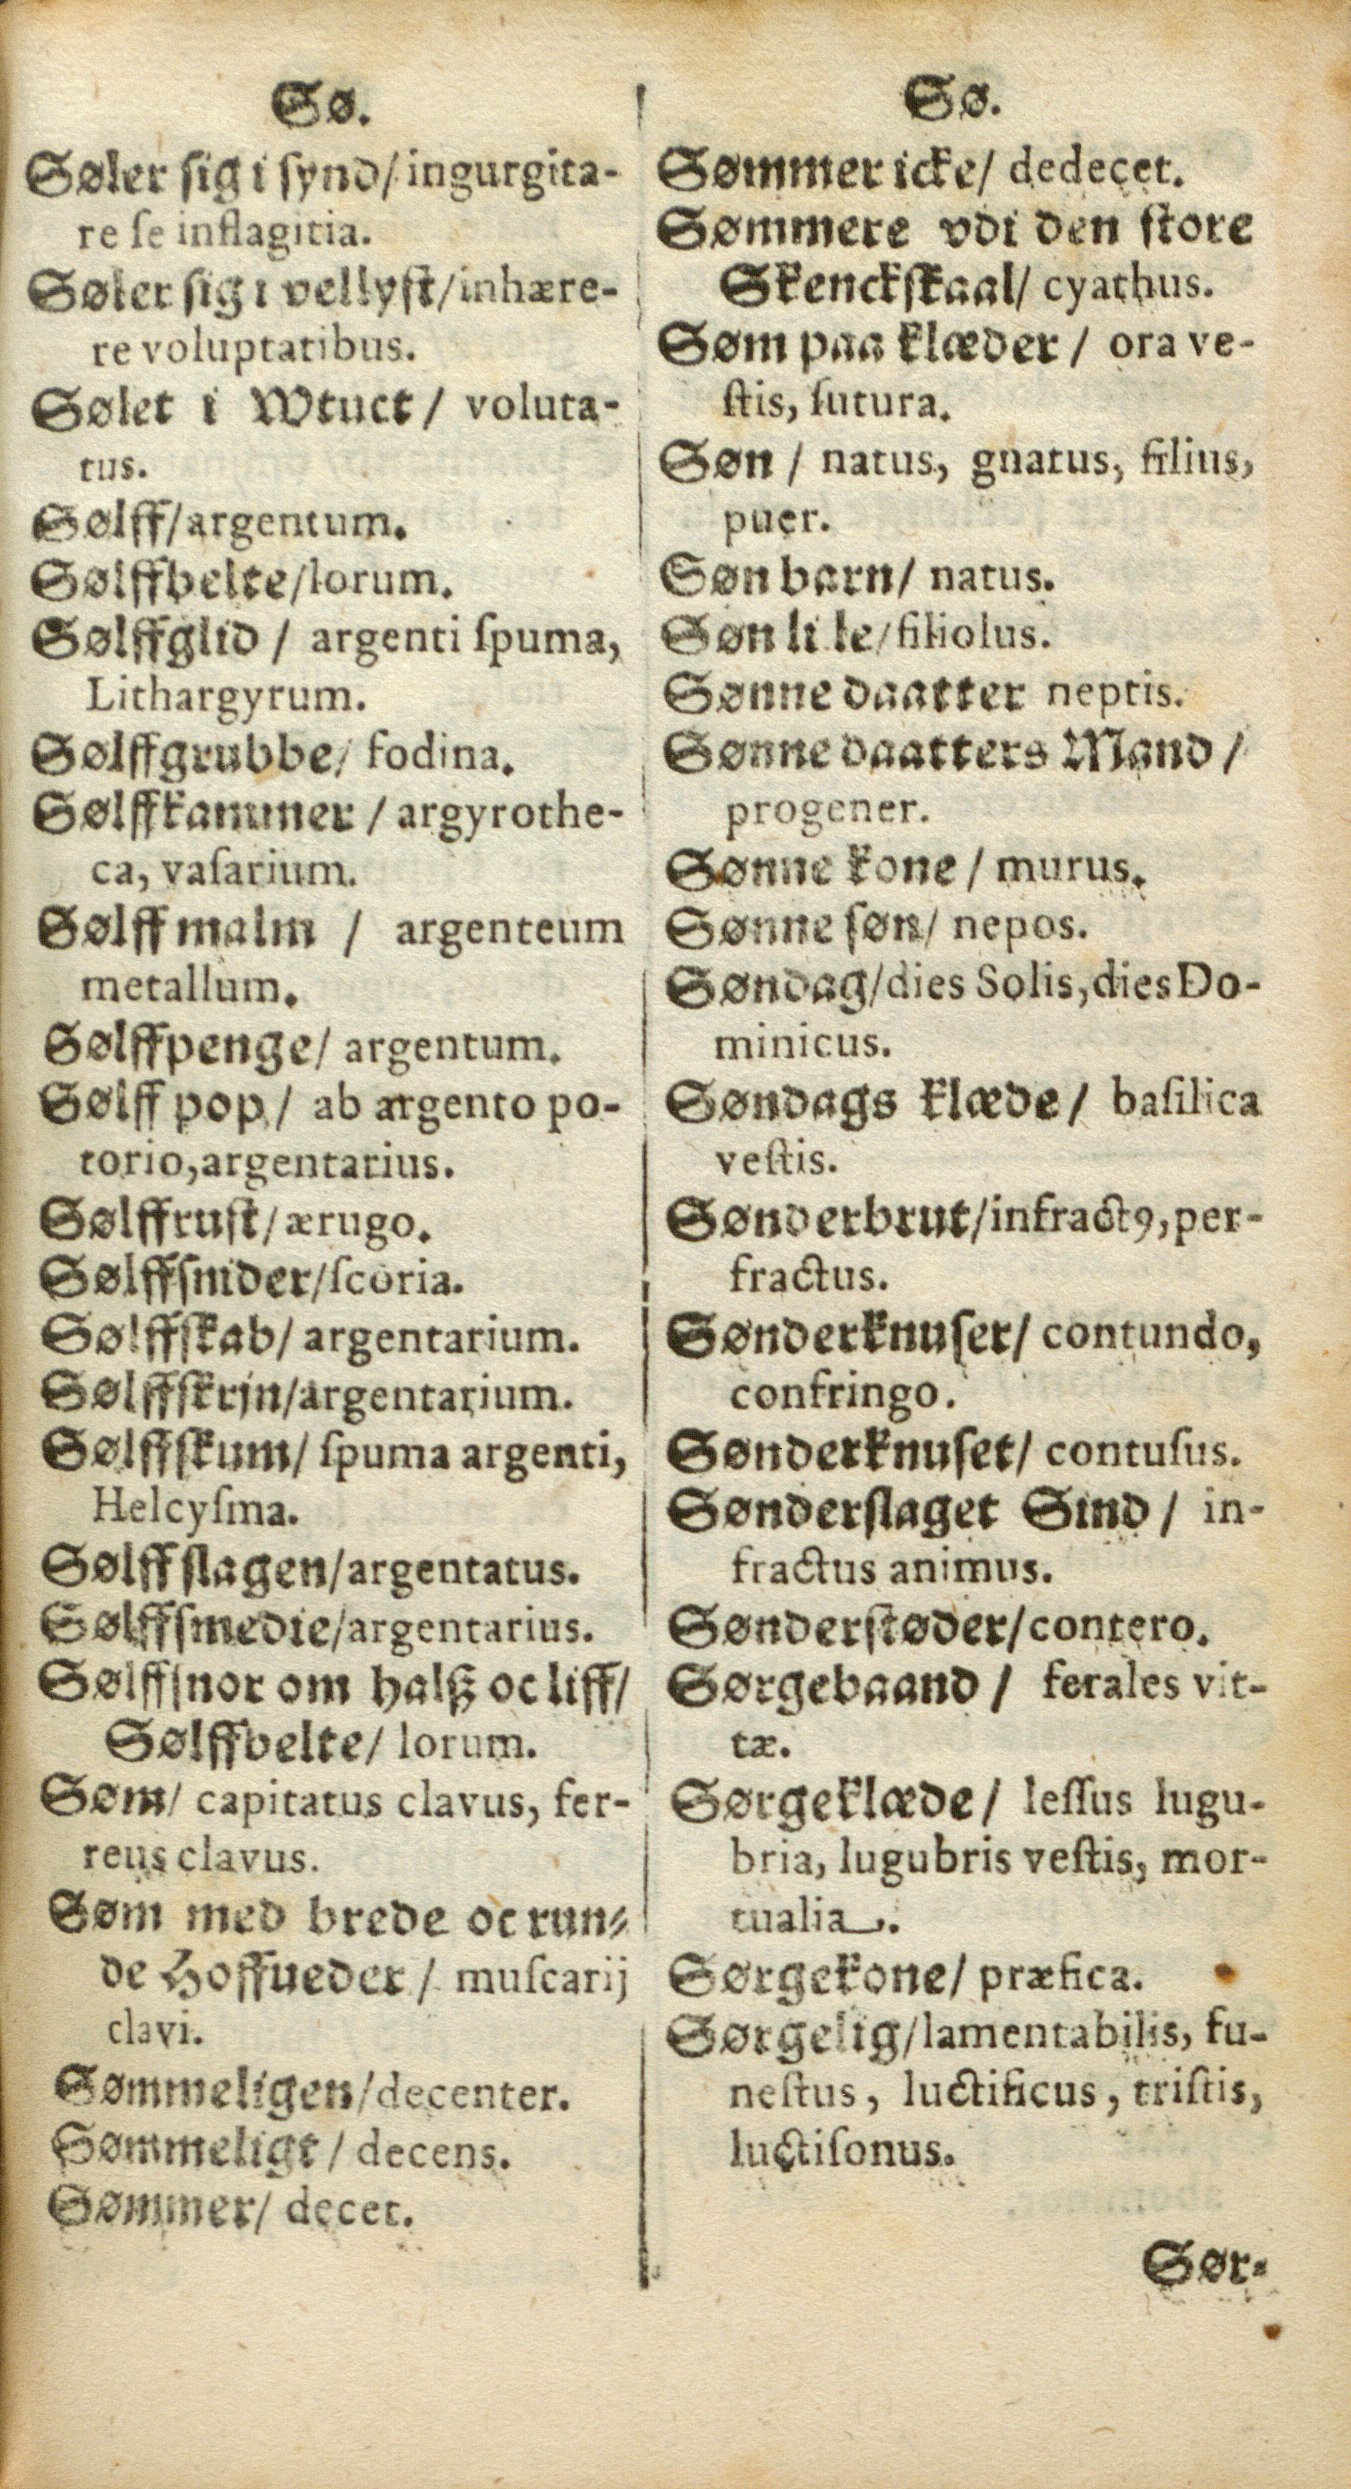 Sø.
Søler sig i synd/ ingurgita-
re ſe inflagitia.
Søler sig i vellyſt/ inhære-
re voluptatibus.
Sølet i Wtuct/ voluta-
tus.
Sølff/ argentum.
Sølffbelte/ lorum.
Sølffglid/ argenti ſpuma,
Lithargyrum.
Sølffgrubbe/ fodina.
Sølffkammer/ argyrothe-
ca, vaſarium.
Sølff malm/ argenteum
metallum.
Sølffpenge/ argentum.
Sølff pop/ ab argento po-
torio, argentarius.
Sølffruſt/ ærugo.
Sølffſinder/ ſcoria.
Sølffſkab/ argentarium.
Sølffſkrin/ argentarium.
Sølffſkum/ ſpuma argenti,
Helcyſma.
Sølff ſlagen/ argentatus.
Sølffſmedie/ argentarius.
Sølffſnor om halß oc liff/
Sølffbelte/ lorum.
Søm/ capitatus clavus, fer-
reus clavus.
Søm med brede oc run-
de Hoffueder/ muſcarij
clavi.
Sømmeligen/ decenter.
Sømmeligt/ decens.
Sømmer/ decet.
Sø.
Sømmer icke/ dedecet.
Sømmere vdi den ſtore
Skenckſkaal/ cyathus.
Søm paa klæder/ ora ve-
ſtis, ſutura.
Søn/ natus, gnatus, filius,
puer.
Søn barn/ natus.
Søn li le/ filiolus.
Sønne daatter neptis.
Sønne daatters Mand/
progener.
Sønne kone/ murus.
Sønne ſøn/ nepos.
Søndag/ dies Solis, dies Do-
minicus.
Søndags klæde/ baſilica
veſtis.
Sønderbrut/ infractꝯ, per-
fractus.
Sønderknuſer/ contundo,
confringo.
Sønderknuſet/ contuſus.
Sønderſlaget Sind/ in-
fractus animus.
Sønderſtøder/ contero.
Sørgebaand/ ferales vit-
tæ.
Sørgeklæde/ leſſus lugu-
bria, lugubris veſtis, mor-
tualia.
Sørgekone/ præfica.
Sørgelig/ lamentabilis, fu-
neſtus, luctificus, triſtis,
luctiſonus.
Sør-